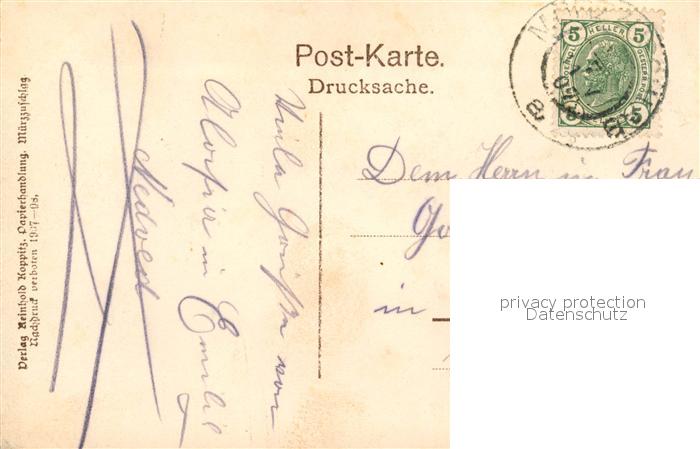 Post-Karte.
Drucksache.
5 HELLER 5
5 5
Dem Herrn in Frau
Go
in
privacy protection
Datenschutz
Viele Grüße von
in Emilie
Nedved
Verlag Reinhold Koppitz, Papierhandlung, Mürzzuschlag
Nachdruck verboten 1907-08.